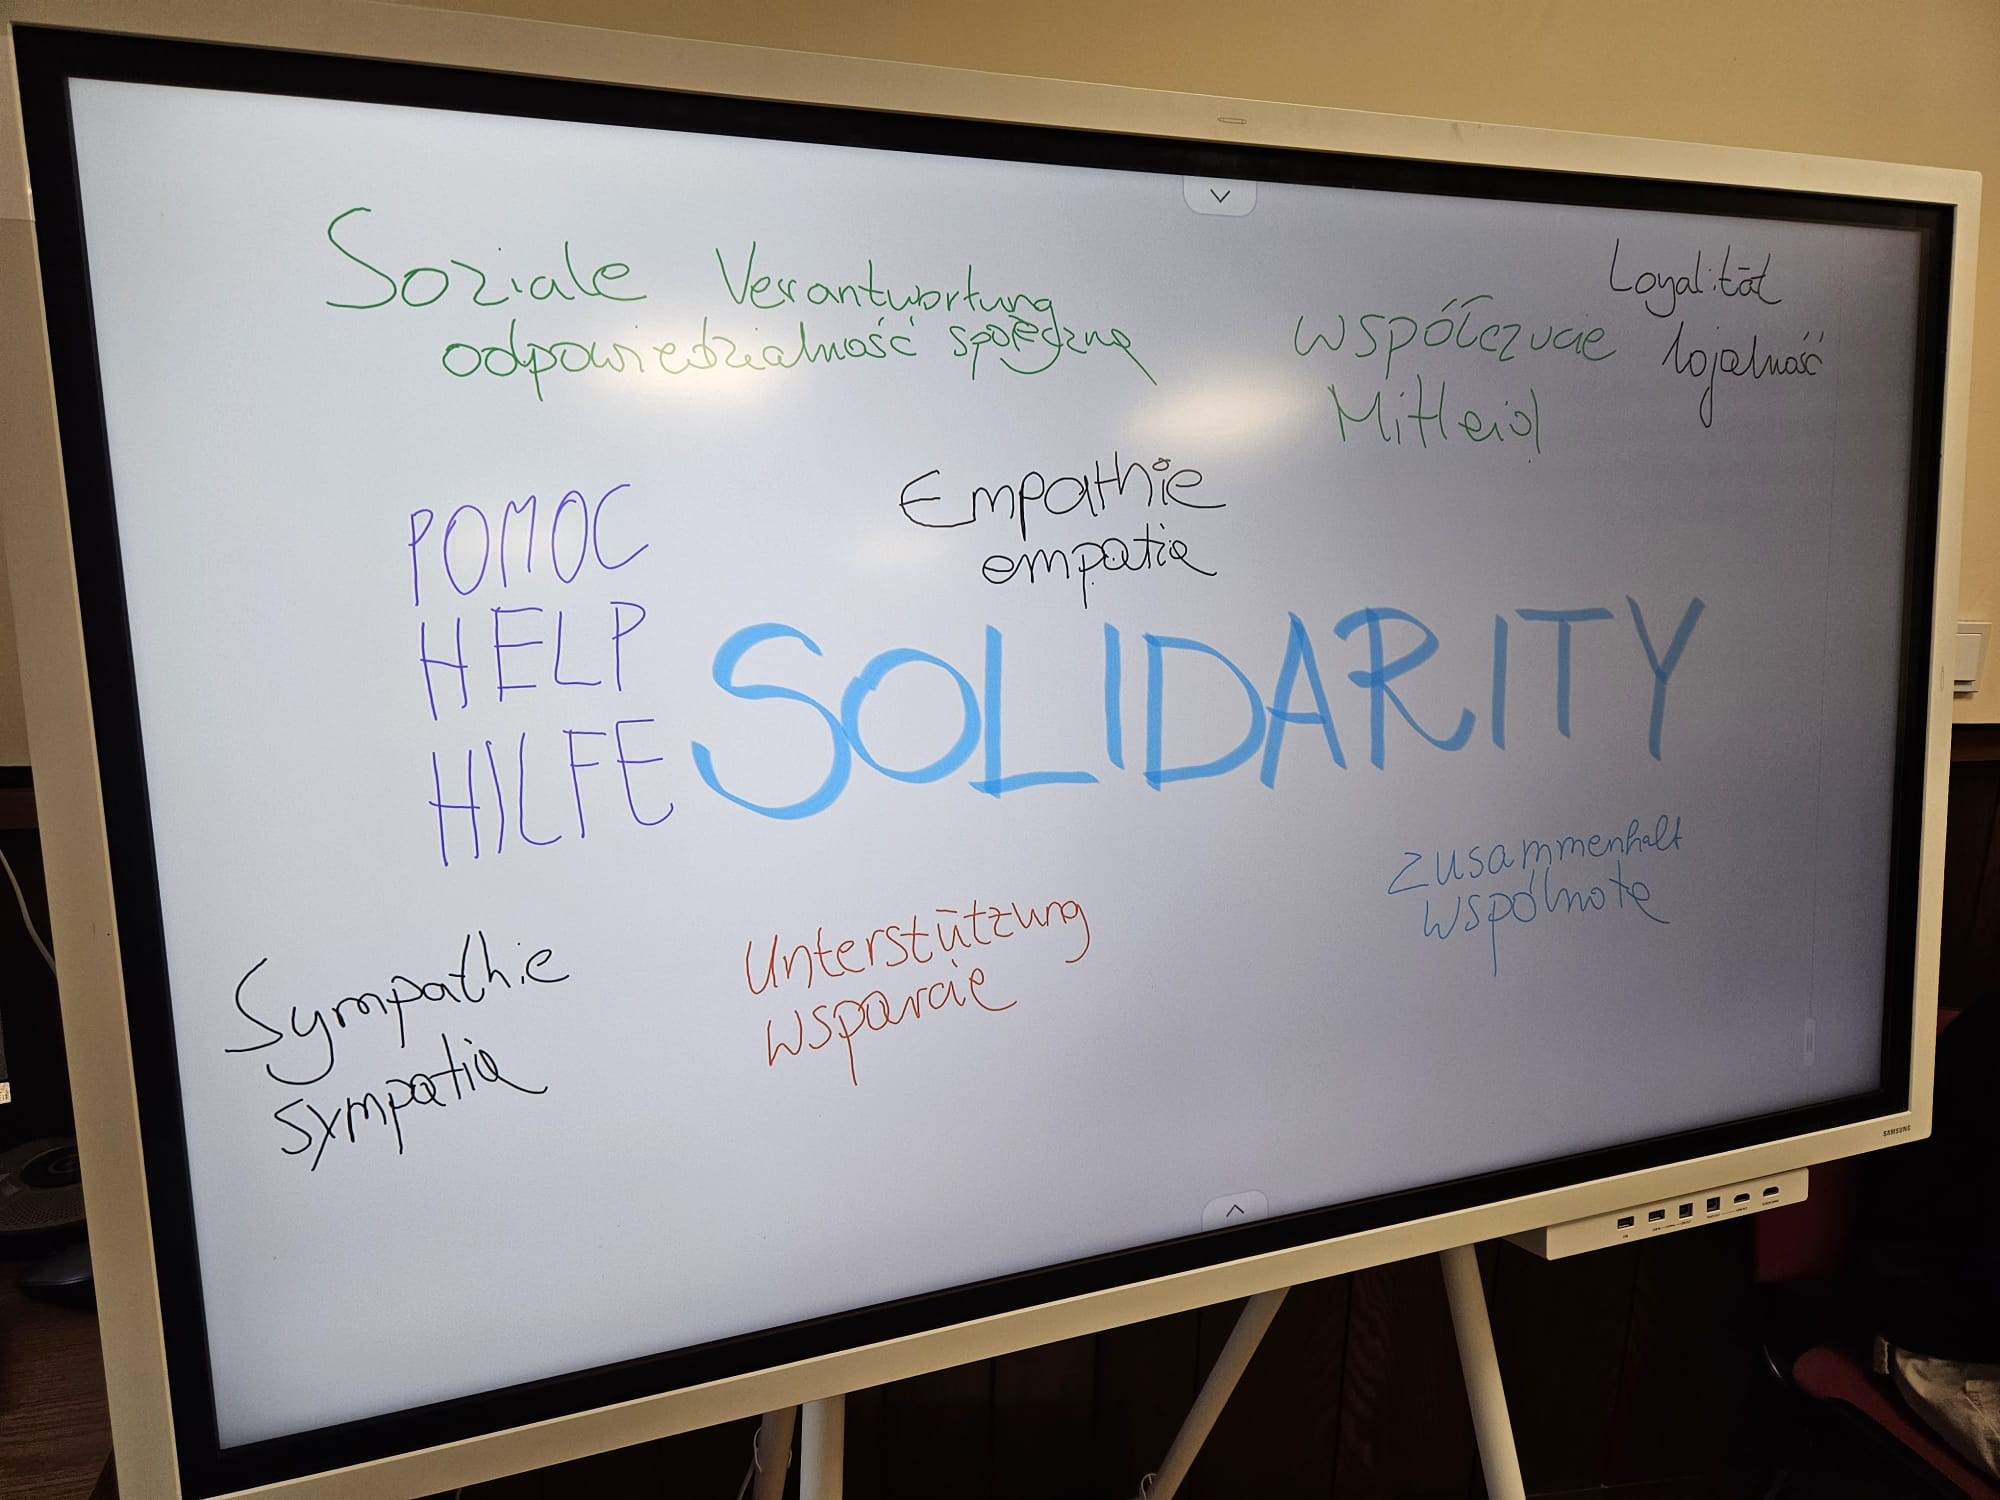 Soziale Verantwortung
odpowiedzialność społeczna
Loyalität
lojalność
współczucie
Mitleid
Empathie
empatia
POMOC
HELP
HILFE
SOLIDARITY
Zusammenhalt
wspólnota
Unterstützung
wsparcie
Sympathie
sympatia
SAMSUNG